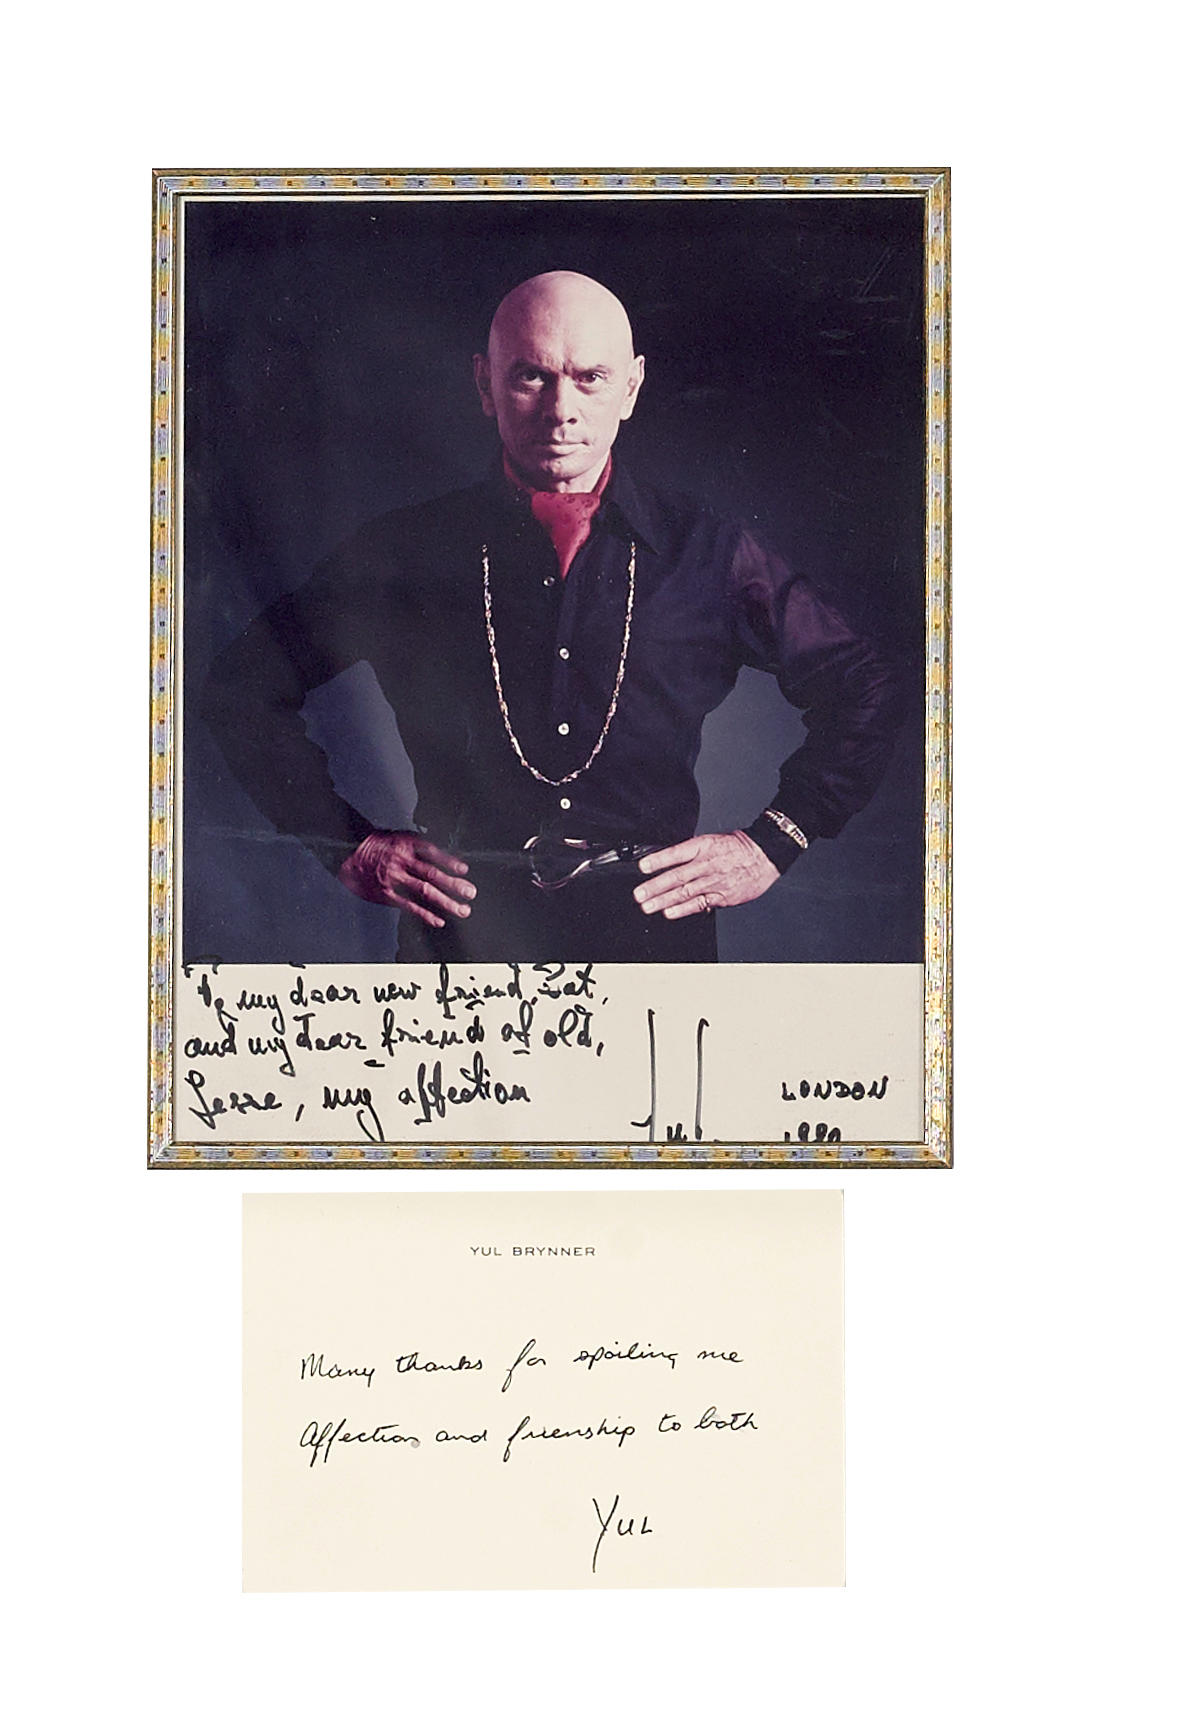 To my dear new friend, Pat,
and my dear friend of old,
Jesse, my affection
Yul
LONDON
1980
YUL BRYNNER
Many thanks for spoiling me
Affection and frienship to both
YUL